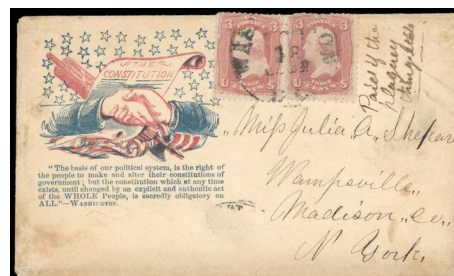 THE
CONSTITUTION
"The basis of our political system, is the right of
the people to make and alter their constitutions of
government; but the constitution which at any time
exists, until changed by an explicit and authentic act
of the WHOLE People, is sacredly obligatory on
ALL."—WASHINGTON.
3 3
U THREE CENTS S
3 3
U THREE CENTS S
Paid by the
Miss Julia A. Shepard
Wampsville,
Madison, Co,
N York.